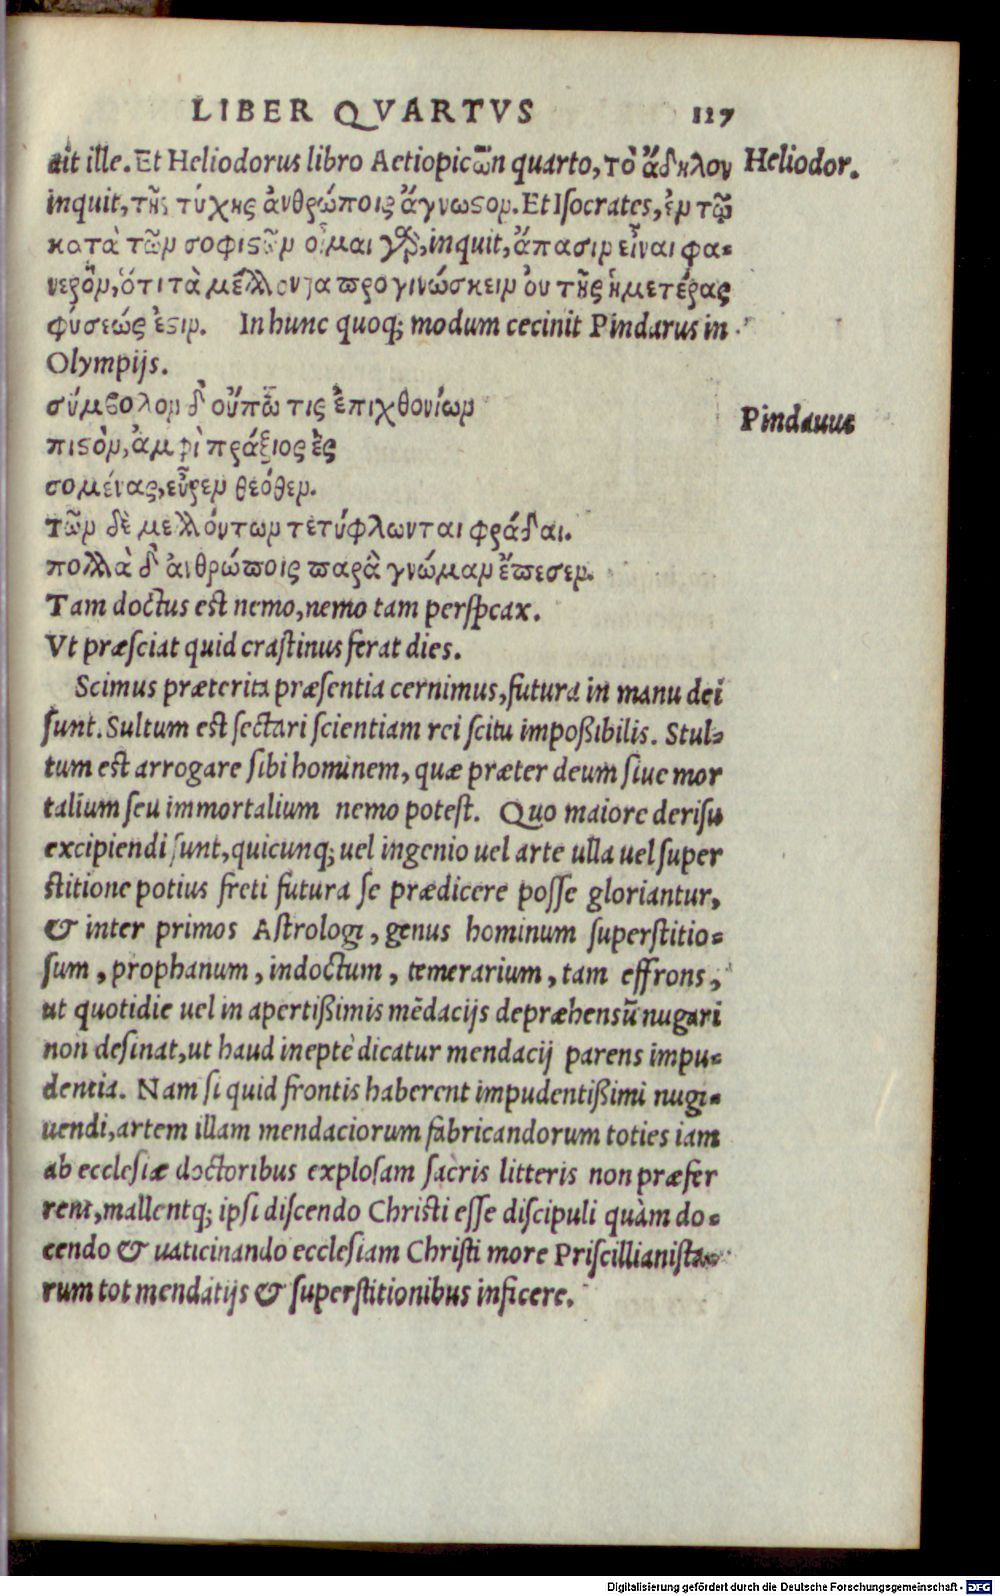 LIBER QVARTVS 127
ait ille. Et Heliodorus libro Aetiopicῶn quarto, τὸ ἄδηλον Heliodor.
inquit, τῆς τύχης ἀνθρώποις ἄγνωϛον. Et Isocrates, ἐν τῷ
κατὰ τῶν σοφιϛῶν οἶμαι γὰρ, inquit, ἅπασιν εἶναι φα-
νερὸν, ὅτι τὰ μέλλοντα προγινώσκειν οὐ τῆς ἡμετέρας
φύσεώς ἐϛιν. In hunc quoq; modum cecinit Pindarus in
Olympijs.
σύμβολον δ᾽ οὔπω τις ἐπιχθονίων
Pindauus
πιϛὸν, ἀμφὶ πράξιος ἐς
σομένας, εὗρεν θεόθεν.
τῶν δὲ μελλόντων τετύφλωνται φράδαι.
πολλὰ δ᾽ ἀνθρώποις παρὰ γνώμαν ἔπεσεν.
Tam doctus est nemo, nemo tam perspcax.
Vt præsciat quid crastinus ferat dies.
Scimus præterita præsentia cernimus, futura in manu dei
sunt. Sultum est sectari scientiam rei scitu impoßibilis. Stul-
tum est arrogare sibi hominem, quæ præter deum siue mor
talium seu immortalium nemo potest. Quo maiore derisu
excipiendi sunt, quicunq; uel ingenio uel arte ulla uel super
stitione potius freti futura se prædicere posse gloriantur,
& inter primos Astrologi, genus hominum superstitio-
sum, prophanum, indoctum, temerarium, tam effrons,
ut quotidie uel in apertißimis mēdacijs depræhensū nugari
non desinat, ut haud ineptè dicatur mendacij parens impu-
dentia. Nam si quid frontis haberent impudentißimi nugi-
uendi, artem illam mendaciorum fabricandorum toties iam
ab ecclesiæ doctoribus explosam sacris litteris non præfer
rent, mallentq; ipsi discendo Christi esse discipuli quàm do-
cendo & uaticinando ecclesiam Christi more Priscillianista-
rum tot mendatijs & superstitionibus inficere.
Digitalisierung gefördert durch die Deutsche Forschungsgemeinschaft - DFG